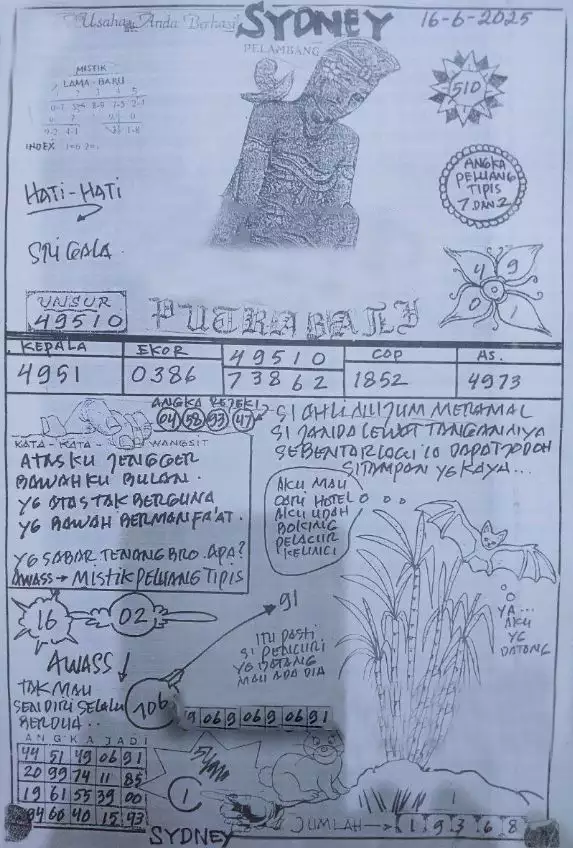 Usaha Anda Berhasil
SYDNEY
16-6-2025
PELAMBANG
MISTIK
LAMA - BARU
INDEX
510
HATI-HATI
ANGKA
PELUANG
TIPIS
7 DAN 2
SRIGALA
4 9
0 1
UNSUR
49510
PUTRA BALI
KEPALA
EKOR
49510
COP
AS.
4951
0386
73862
1852
4973
ANGKA REZEKI
04 58 93 47
KATA - KATA - WANGSIT
SI AHLI NUJUM MERAMAL
SI JANDA LEWAT TANGANNYA
SEBENTAR LAGI IA DAPAT JODOH
SI TAMPAN YG KAYA...
ATASKU JENGGER
BAWAHKU BULAN.
YG ATAS TAK BERGUNA
YG BAWAH BERMANFA'AT.
YG SABAR, TENANG BRO. APA?
AWASS → MISTIK PELUANG TIPIS
AKU MAU
CARI HOTEL
AKU UDAH
BOKING
PELACUR
KELINCI
YA...
AKU
YG
DATANG
16
02
91
ITU PASTI
SI PENCURI
YG DATANG
MAU ADA DIA
AWASS!
TAK MAU
SENDIRI SELALU
BERDUA..
106
9 06 9 06 9 06 91
ANGKA JADI
44 51 49 06 91
20 99 74 11 85
19 61 55 39 00
94 60 40 15 93
1
SYDNEY
JUMLAH → 1 9 3 6 8